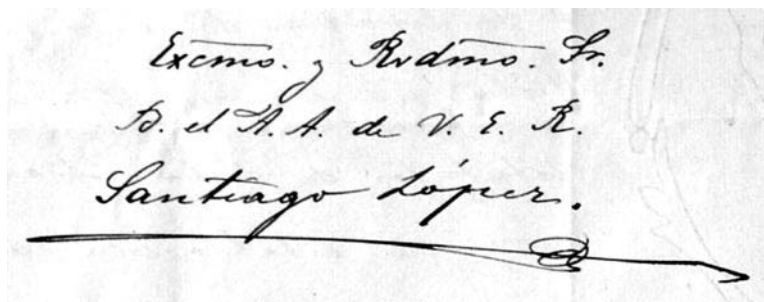 Excmo. y Rvdmo. Sr.
B. el A. A. de V. E. R.
Santiago López.